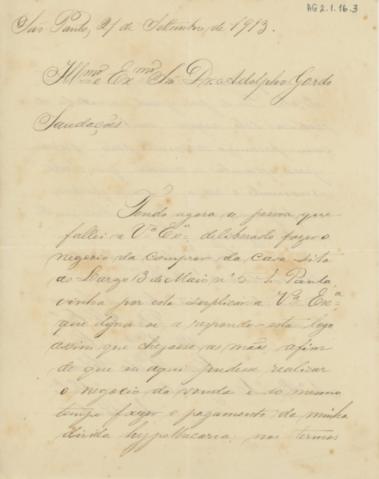 AG 2.1.16.3
São Paulo, 21 de Setembro de 1913.
Illmo e Exmo Snr Dr. Adolpho Gordo
Saudações
Tendo agora a pessoa que
fallei a Va Exa deliberado fazer o
negocio da compra da casa sita
ao Largo 13 de Maio nº 5
venho por esta supplicar a Va Exa
que digne se a responder esta logo
assim que chegasse as mãos afim
de que eu aqui pudesse realizar
o negocio da venda e ao mesmo
tempo fazer o pagamento da minha
divida hypothecaria, nos termos